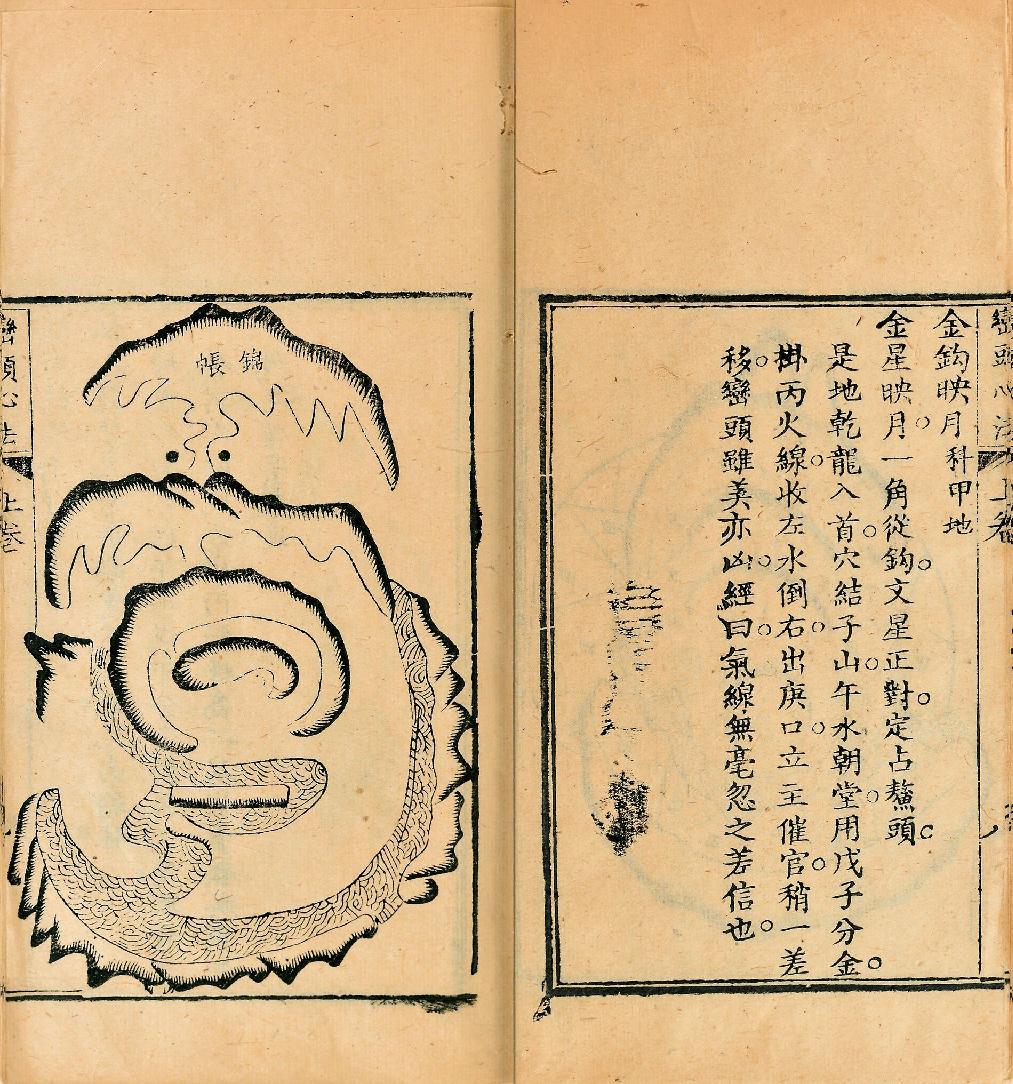 巒頭心法 上卷
金鈎映月 科甲地
金星映月。一角從鈎。文星正對。定占鰲頭。
是地乾龍入首。穴結子山。午水朝堂。用戊子分金。
掛丙火線。收左水倒右。出庚口。立主催官。稍一差
移。巒頭雖美亦凶。經曰。氣線無毫忽之差。信也。
錦帳
巒頭心法 上卷